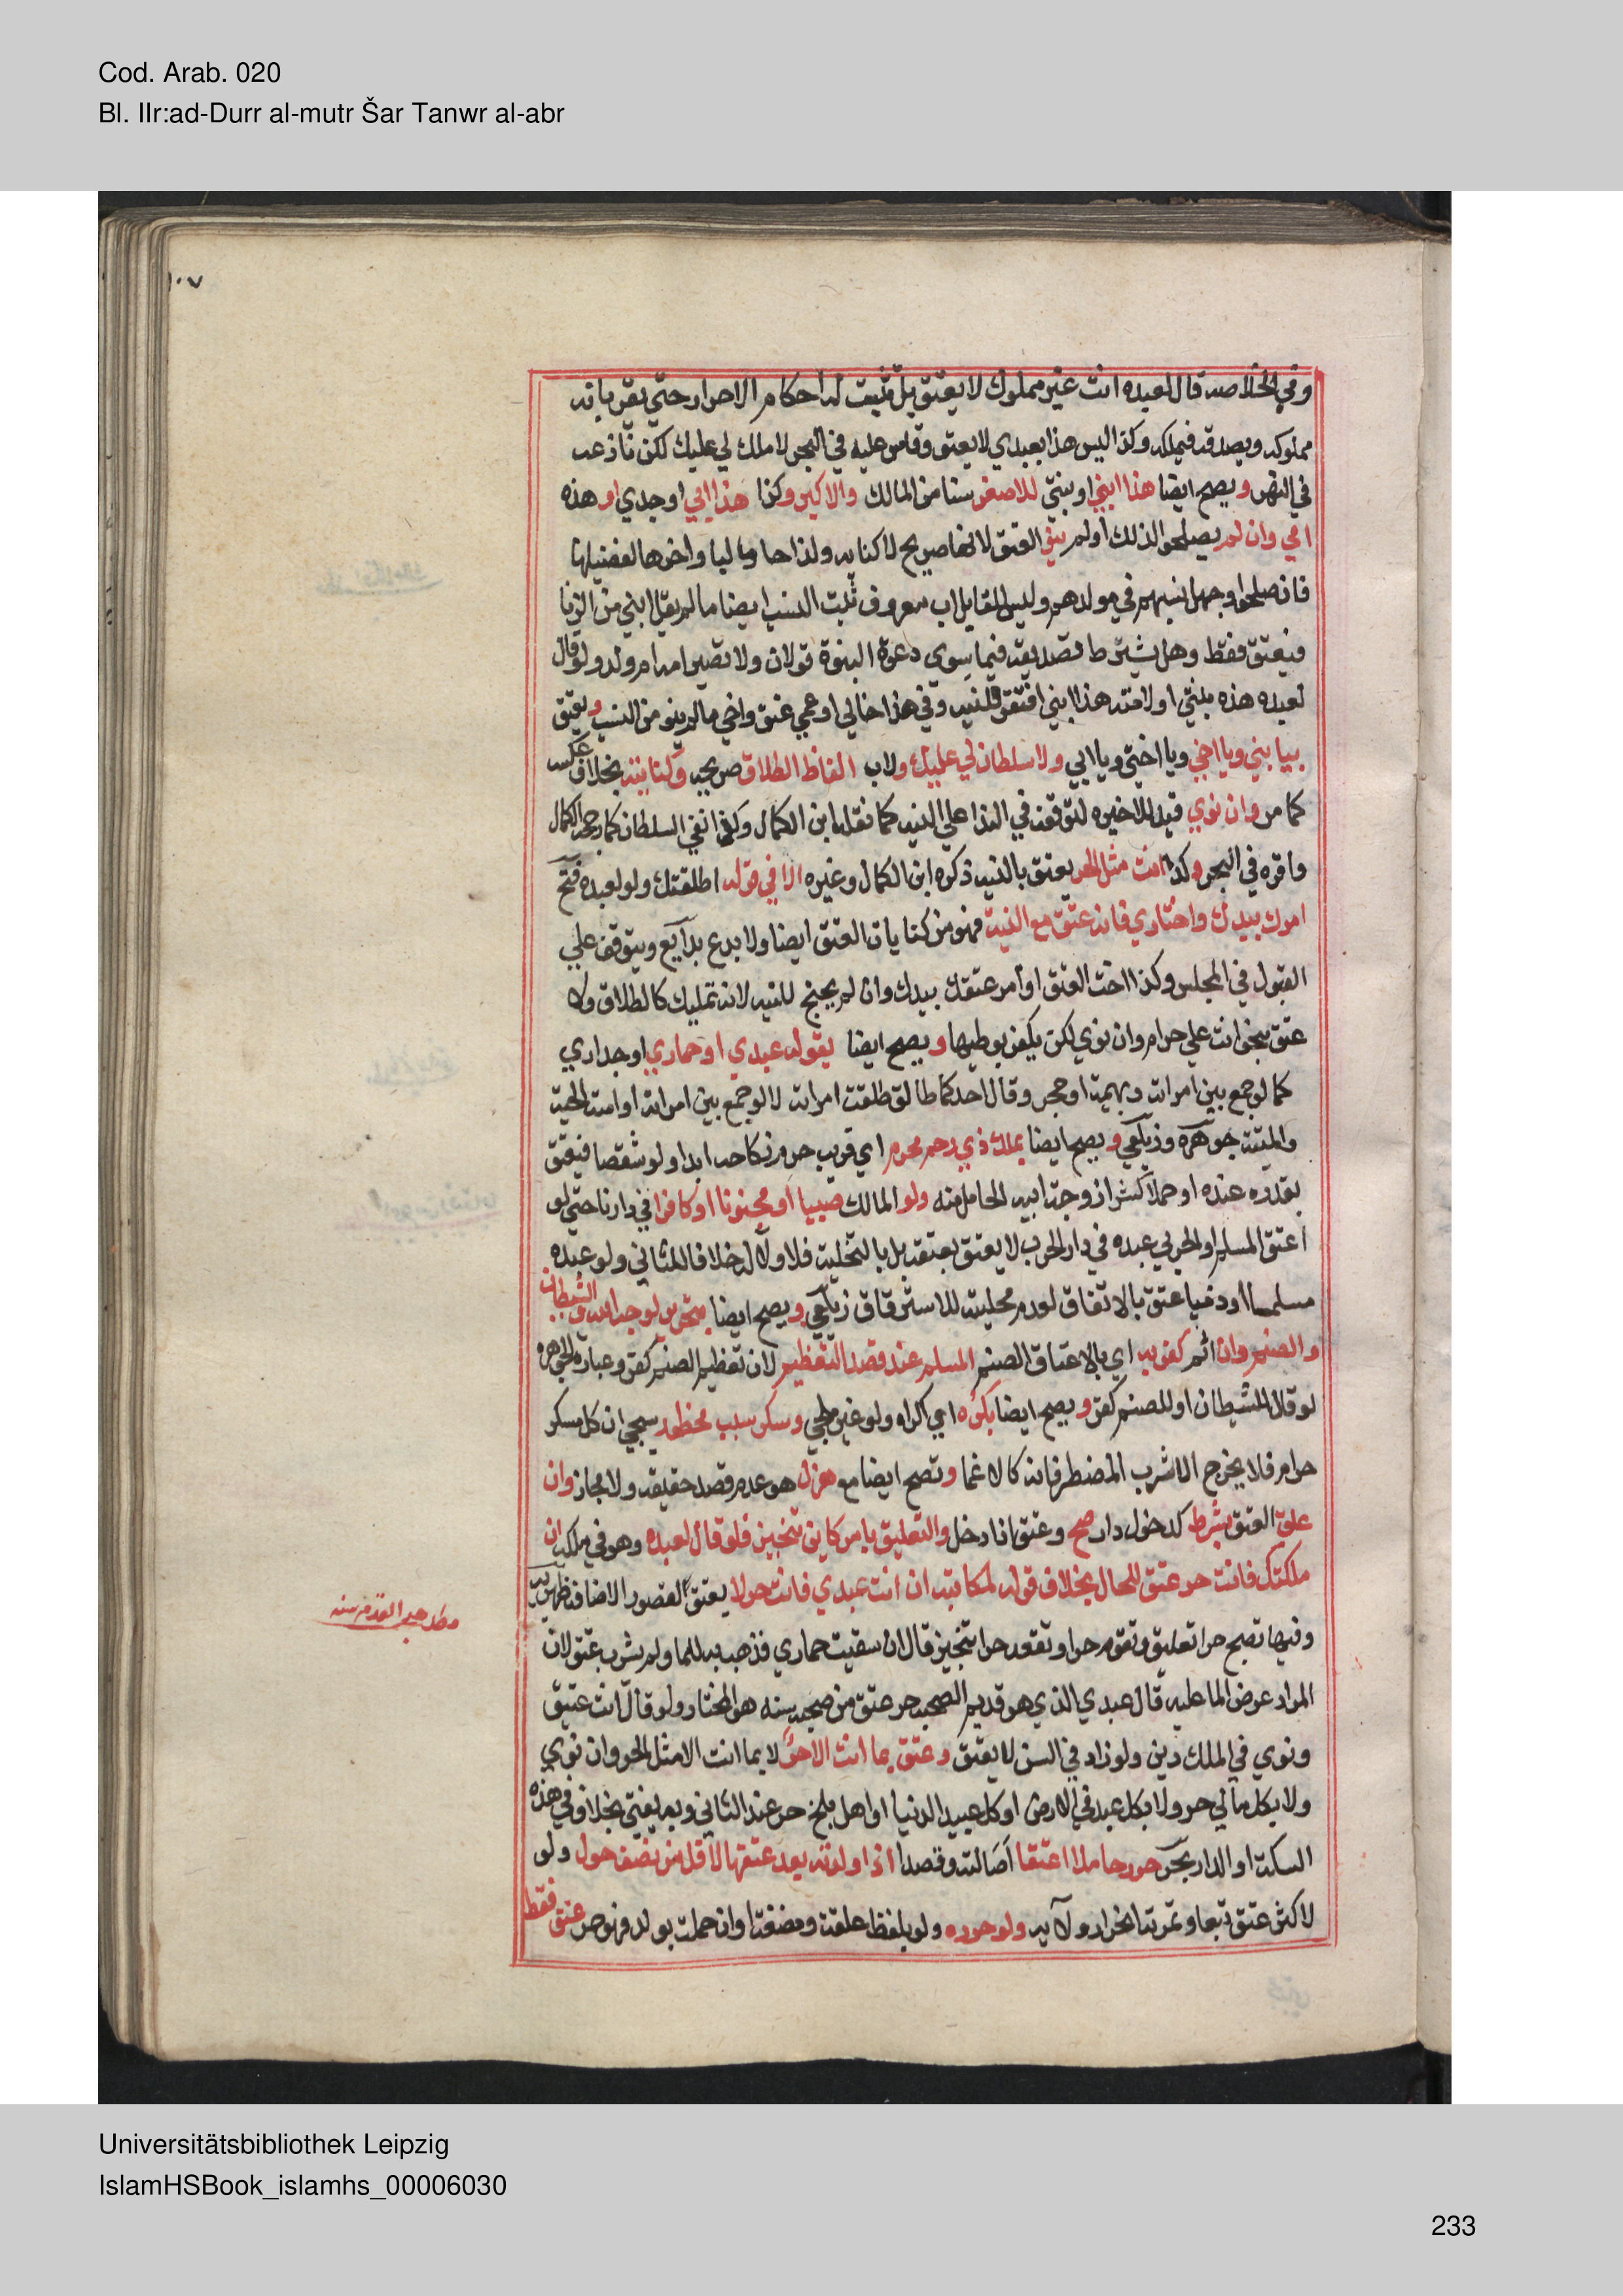 Cod. Arab. 020
Bl. IIr:ad-Durr al-mutr Šar Tanwr al-abr
١٠٧
وفي الخلاصه قال لعبده انت غير مملوك لا يعتق بل تثبت له احكام الاحرار حتي يقر بانه
مملوكه ويصدقه فيملكه وكذا ليس هذا بعبدي لا يعتق وقاس عليه في البحر لا ملك لي عليك لكن نازعه
في النهر ويصح ايضا هذا ابني او بنتي للاصغر سنا من المالك والاكبر وكذا هذا ابي او جدي او هذه
امي وان لم يصلحوا لذلك او لم ينو العتق لانها صريح لا كنايه ولذا جا وبالبا واخرها لتفصيلها
فان صلحوا وجهل نسبهم في مولدهم وليس للقايل اب معروف ثبت النسب ايضا ما لم يقل ابني من الزنا
فيعتق فقط وهل يشترط تصديقه فيما سوي دعوة البنوة قولان ولا تصير امه ام ولد ولو قال
لعبده هذه بنتي او لامته هذا ابني افتقر للنيه وفي هذا خالي او عمي عتق واخي ما لم ينو من النسب ويعتق
بيا بني ويا اخي ويا اختي ويا ابي ولا سلطان لي عليك ولاب الفاظ الطلاق صريحه وكنايته بخلاف عكسه
كما مر وان نوي قيد للاخيره لتوقفه في الندا علي النيه كما نقله ابن الكمال وكذا نفي السلطان كما رجحه الكمال
واقره في البحر وكذا انت مثل الحر يعتق بالنيه ذكره ابن الكمال وغيره الا في قوله اطلقتك ولو لعبده فتح
امرك بيدك واختاري فانه عتق مع النية فهو من كنايات العتق ايضا ولا بدع بدآيع ويتوقف علي
القبول في المجلس وكذا اختر العتق او أمر عتقك بيدك وان لم يحتج للنيه لانه تمليك كالطلاق ولا
عتق بنحو انت علي حرام وان نوي لكن يكفر بوطيها ويصح ايضا بقوله عبدي او حماري او جداري
كما لو جمع بين امراته وبهيمة او حجر وقال احدكما طالق طلقت امراته لا لو جمع بين امراته او امته الحية
والميتة جوهرة وزيلعي ويصح ايضا بملك ذي رحم محرم اي قريب حرم نكاحه ابدا ولو شقصا فيعتق
بقدره عنده او حملا كشرا زوجة ابيه الحامل منه ولو المالك صبيا او مجنونا او كافرا في دارنا حتي لو
اعتق المسلم او الحربي عبده في دار الحرب لا يعتق بعتقه بل بالتخلية فلا ولآ له خلافا للثاني ولو عبده
مسلما او ذميا عتق بالاتفاق لعدم محليته للاسترقاق زيلعي ويصح ايضا بتحرير لوجه الله والشيطان
والصنم وان اثم كفر به اي بالاعتاق للصنم المسلم عند قصد التعظيم لان تعظيم الصنم كفر وعبارة الجوهره
لو قال للشيطان او للصنم كفر ويصح ايضا بكره اي اكراه ولو غير ملجي وسكر بسبب محظور سيجي ان كل مسكر
حرام فلا يخرج الا شرب المضطر فانه كالاغما وتصح ايضا مع هزل هو عدم قصد حقيقة ولا مجاز وان
علق العتق بشرط كدخول دار صح وعتق اذا دخل والتعليق بامر كاين تنجيز فلو قال لعبده وهو في ملكه ان
ملكتك فانت حر عتق للحال بخلاف قوله لمكاتبه ان انت عبدي فانت حر لا يعتق لقصور الاضافة ظهيريه
وفيها تصبح حرا تعليق وتقوم حرا وتقعد حرا تنجيز قال ان سقيت حماري فذهب به للما ولم يشرب عتق لان
المراد عرض الما عليه قال عبدي الذي هو قديم الصحبه حر عتق من صحبه سنه هو المختار ولو قال انت عتيق
ونوي في الملك دين ولو زاد في السن لا يعتق وعتق بما انت الا حرٌ لا بما انت الا مثل الحر وان نوي
ولا بكل مالي حر ولا بكل عبد في الارض او كل عبيد الدنيا او اهل بلخ حر عند الثاني وبه يفتي بخلاف في هذه
السكة او الدار بحر حرر حاملا اعتقا اصالة وقصدا اذا ولدته بعد عتقها لاقل من نصف حول ولو
لاكثر عتق تبعا وثمرته انجرار ولآيه ولو حرره ولو بلفظ علقة ومضغة او ان حملت بولد فهو حر عتق فقط
مطلب حر القدم سنه
Universitätsbibliothek Leipzig
IslamHSBook_islamhs_00006030
233